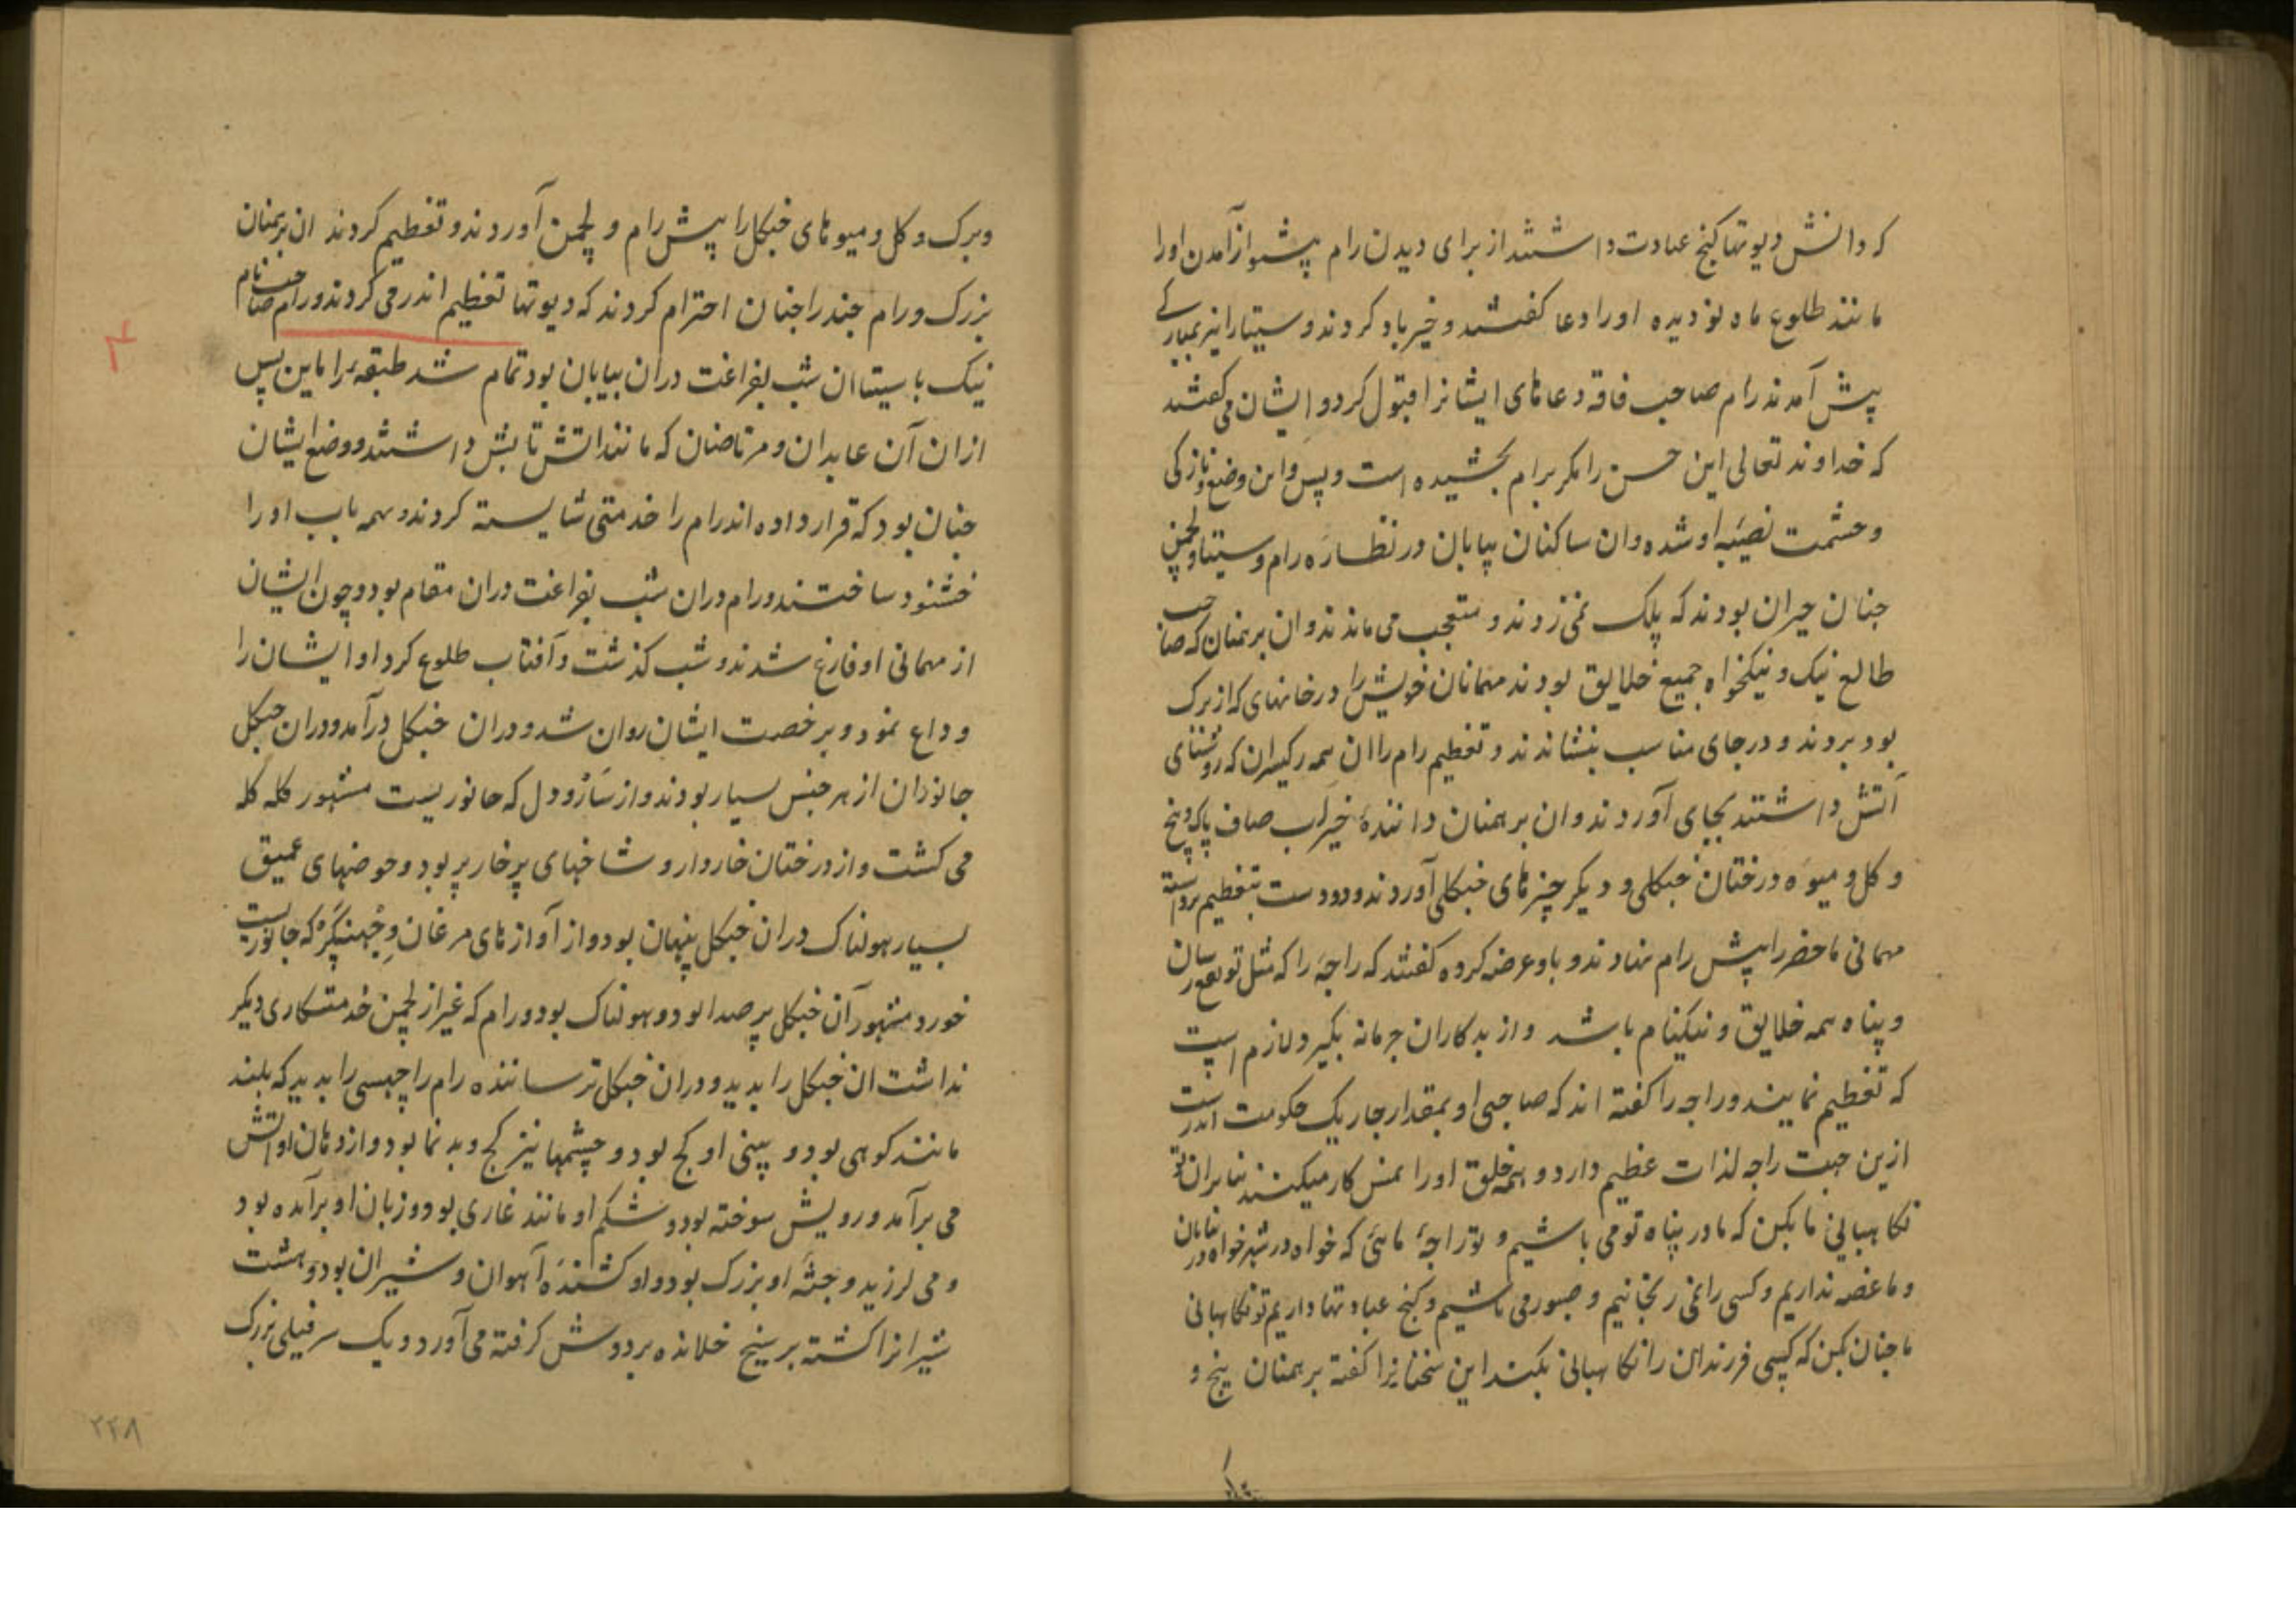 که دانش دیوتها کنج عبادت داشتند از برای دیدن رام پیشواز آمدن او را
مانند طلوع ماه نو دیده او را دعا کفتند و خیرباد کردند و سیتا را نیز بمبارکے
پیش آمدند رام صاحب فاقه دعاهای ایشانرا قبول کرد و ایشان می کفتند
که خداوند تعالی این حسن را مکر برام بخشیده است و پس و این وضع و نازکی
و حشمت نصیبه او شده و ان ساکنان بیابان در نظاره رام و سیتا و لچمن
چنان حیران بودند که پلک نمی زدند و متعجب می ماندند و ان برهمنان که صاحب
طالع نیک و نیکخواه جمیع خلایق بودند مهمانان خویش را در خانهای که از برک
بود بردند و در جای مناسب بنشاندند و تعظیم رام را ان همه رکیسران که روشنای
آتش داشتند بجای آوردند و ان برهمنان دانندهٔ خیر آب صاف پاک و بیخ
و کل و میوه درختان جنکلی و دیکر چیزهای جنکلی آوردند و دو دست بتعظیم برداشته
مهمانی ماحضر را پیش رام نهادند و باو عرضه کرده کفتند که راجه را که مثل تو نفع رسان
و پناه همه خلایق و نیکنام باشد و از بدکاران جرمانه بگیرد لازم است
که تعظیم نمایند و راجه را کفته اند که صاحبی او بمقدار چار یک حکومت اندر است
ازین جهت راجه لذات عظیم دارد و همه خلق او را نمسکار میکنند بنابران تو
نکاهبانی ما بکن که ما در پناه تو می باشیم و تو راجهٔ مائی که خواه در شهر خواه در بیابان
و ما غصه نداریم و کسی را نمی رنجانیم و صبور می باشیم و کنج عبادتها داریم تو نکاهبانی
ما چنان بکن که کسی فرزندان را نکاهبانی بکند این سخنانرا کفته برهمنان بیخ و
و برک و کل و میوهای جنکل را پیش رام و لچمن آوردند و تعظیم کردند ان برهمنان
بزرک و رام چند را چنان احترام کردند که دیوتها تعظیم اندر می کردند و رام صاحب نام
نیک با سیتا ان شب بفراغت دران بیابان بود تمام شد طبقه براماین پس
ازان آن عابدان و مرتاضان که مانند اتش تابش داشتند و وضع ایشان
چنان بود که قرار داده اند رام را خدمتی شایسته کردند و بهمه باب او را
خشنود ساختند و رام دران شب بفراغت دران مقام بود و چون ایشان
از مهمانی او فارغ شدند و شب کذشت و آفتاب طلوع کرد او ایشان را
وداع نمود و بر خصت ایشان روان شد و دران جنکل درآمد و دران جنکل
جانوران از هر جنس بسیار بودند و از سازو دل که جانوریست مشهور کله کله
می کشت و از درختان خاردار و شاخهای پرخار پر بود و حوضهای عمیق
بسیار هولناک دران جنکل پنهان بود و از آوازهای مرغان و جهینکر که جانوریست
خورد مشهور آن جنکل پر صدا بود و هولناک بود و رام که غیر از لچمن خدمتکاری دیکر
نداشت ان جنکل را بدید و دران جنکل ترساننده رام راچهسی را بدید که بلند
مانند کوهی بود و بینی او کج بود و چشمها نیز کج و بد نما بود و از دهان او اتش
می برآمد و رویش سوخته بود و شکم او مانند غاری بود و زبان او برآمده بود
و می لرزید و جثه او بزرک بود و او کشندهٔ آهوان و شیران بود و هشت
شیرانرا کشته بر سیخ خلانده بر دوش کرفته می آورد و یک سر فیلی بزرک
۲۲۸